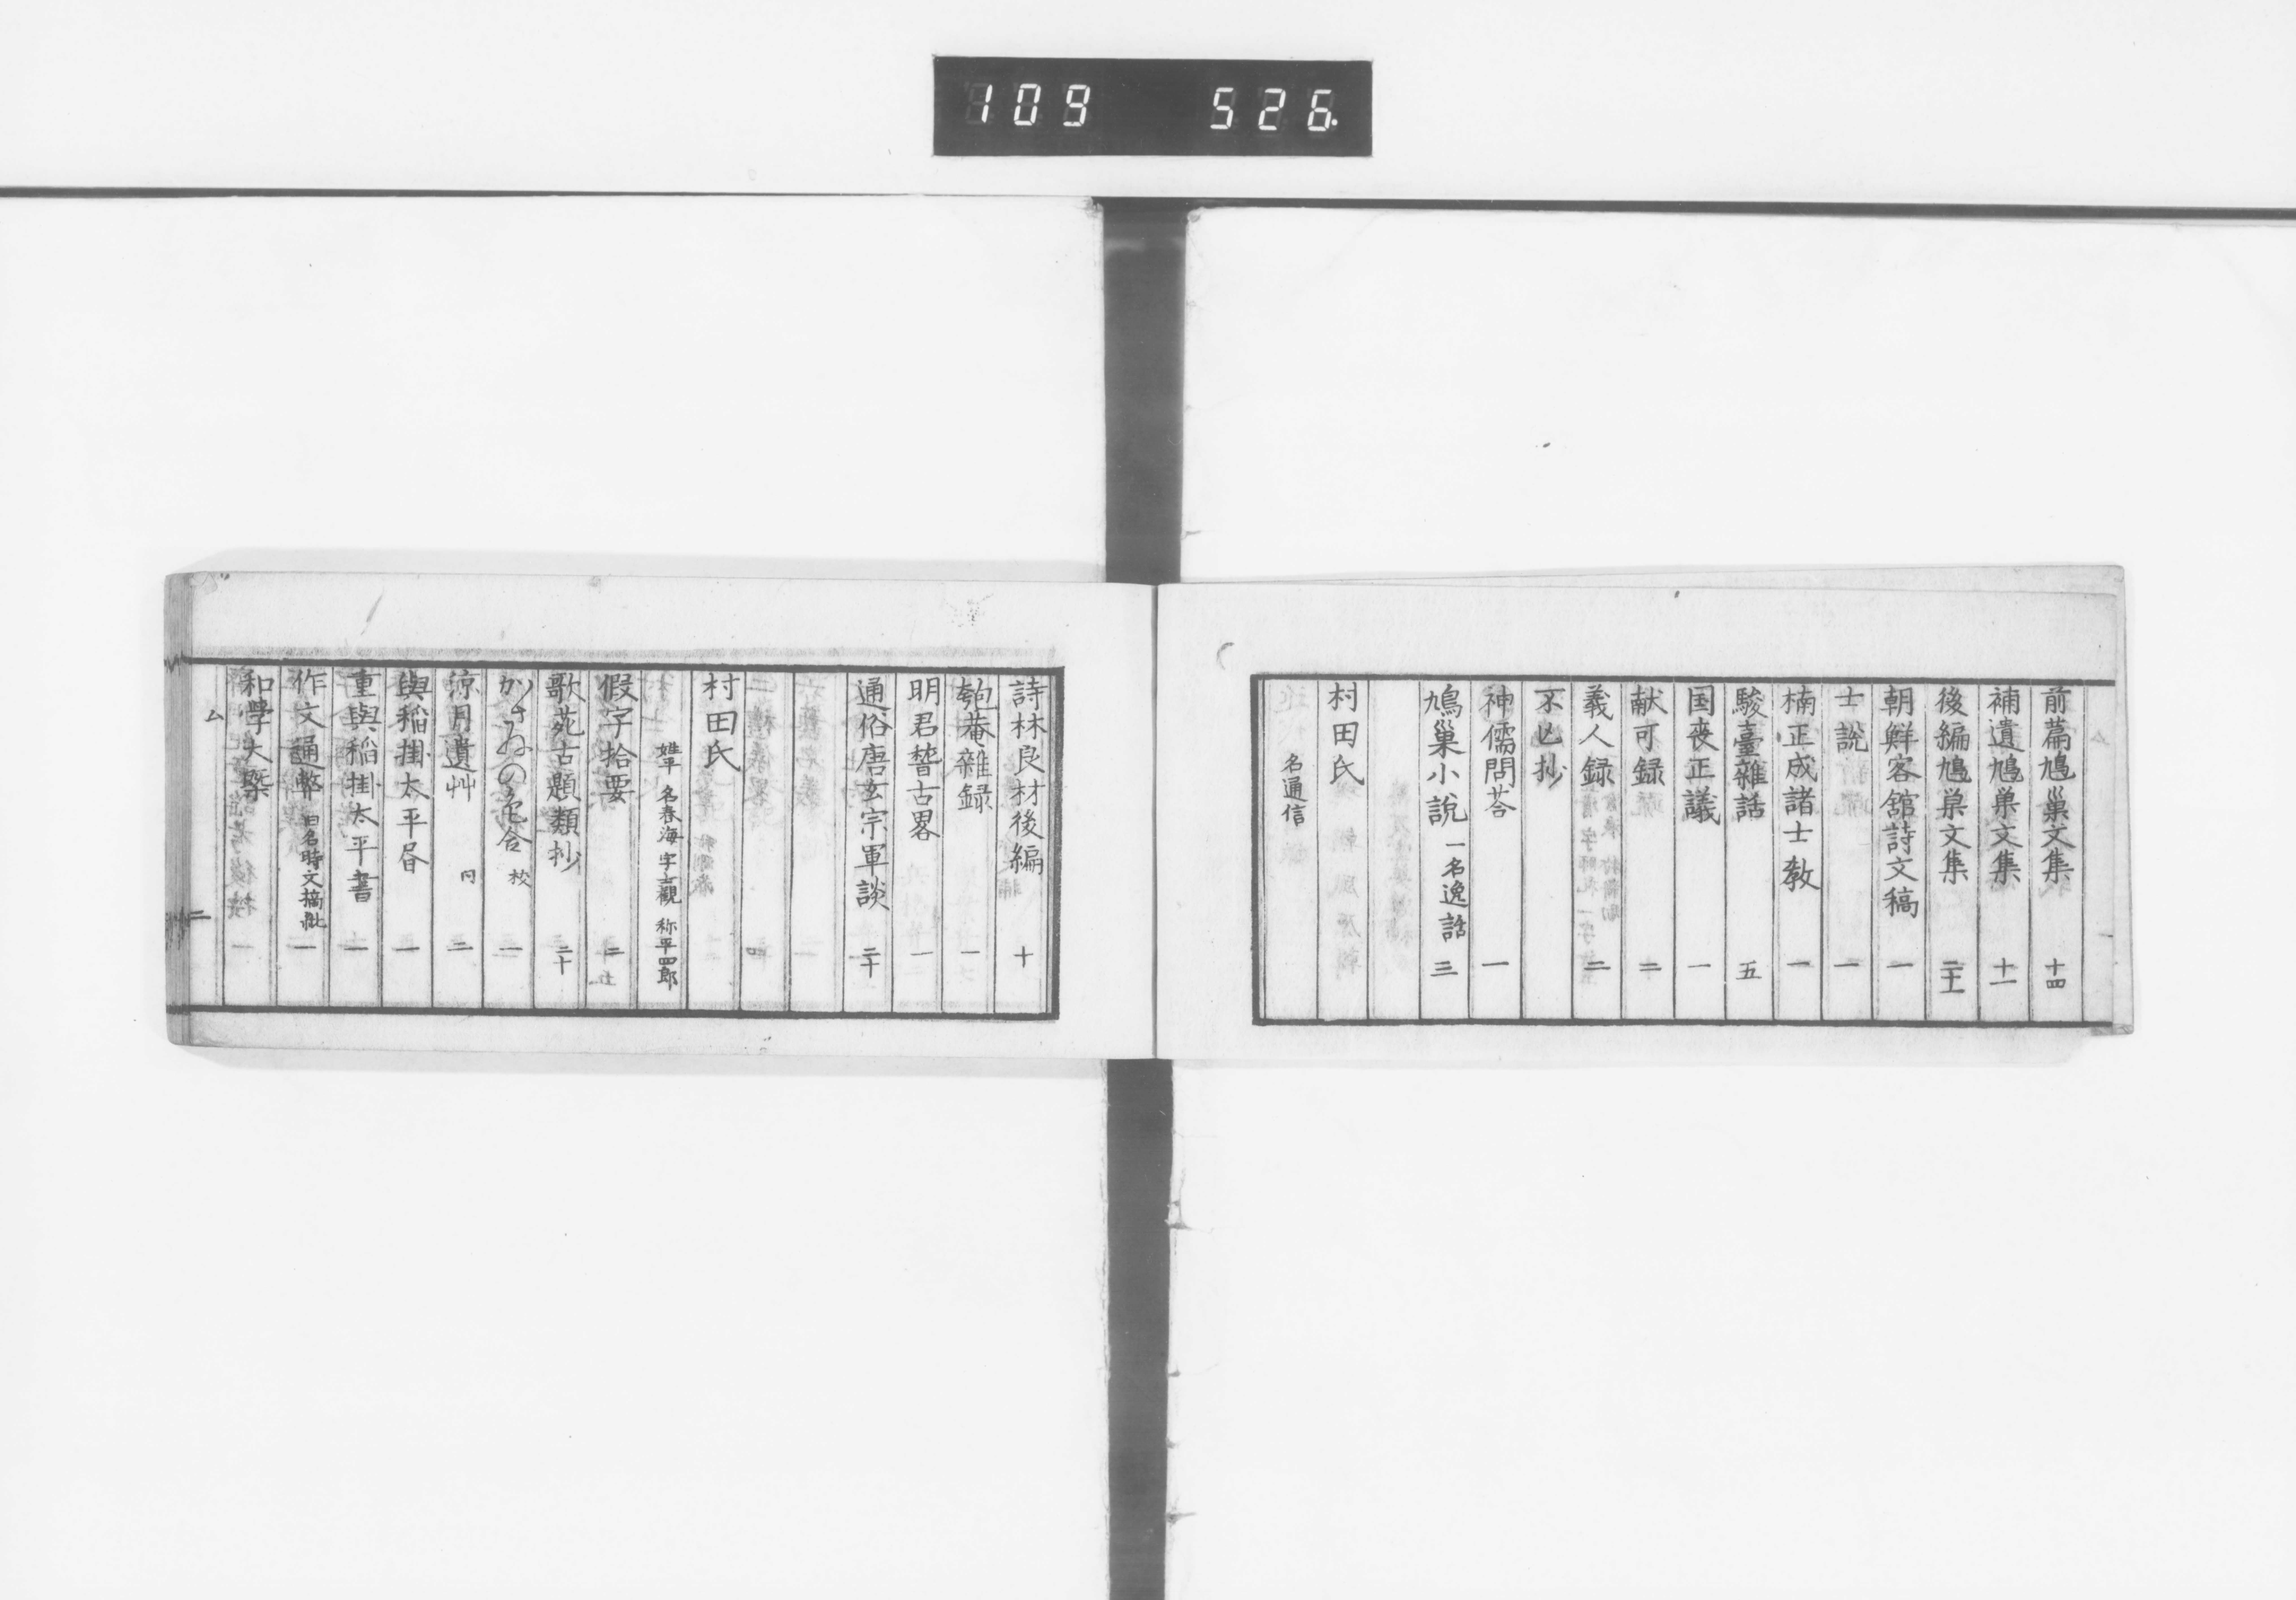 109 526
前篇鳩巢文集 十四
補遺鳩巣文集 十一
後編鳩巣文集 二十一
朝鮮客舘詩文稿 一
士說 一
楠正成諸士教 一
駿臺雜話 五
国喪正議 一
献可録 二
義人録 二
不亾抄
神儒問荅 一
鳩巢小說 一名逸話 三
村田氏
名通信
詩林良材後編 十
匏菴雜録 一
明君㬱古畧 一
通俗唐玄宗軍談 二十
村田氏
姓平 名春海 字士觀 称平四郎
假字拾要 二
歌苑古題類抄 二十
校 一
涼月遺艸 同 二
與稲掛太平書 一
重與稲掛太平書 一
作文通弊 旧名時文摘紕 一
和學大槩 一
ム 二